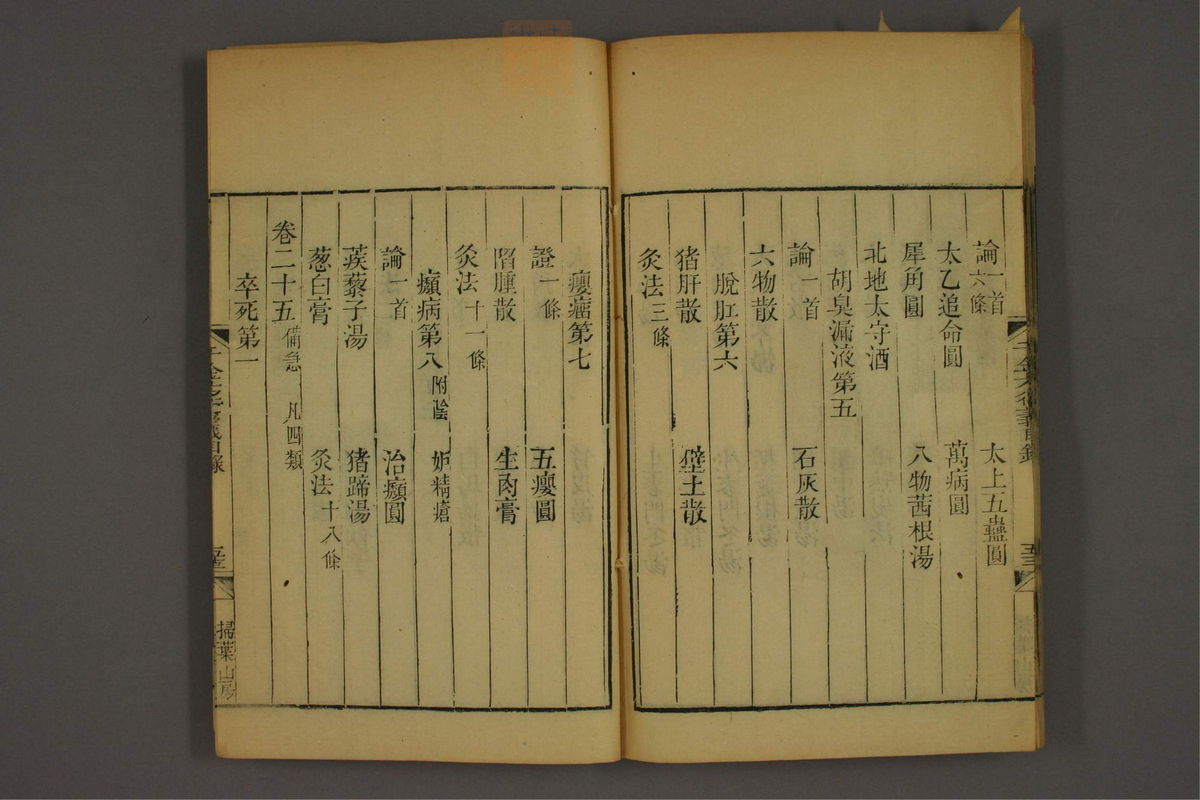 論一首六條　太上五蠱圓
太乙追命圓　萬病圓
犀角圓　八物茜根湯
北地太守酒
胡臭漏液第五
論一首　石灰散
六物散
脫肛第六
猪肝散　壁土散
灸法三條
癭瘤第七
證一條　五癭圓
㿉腫散　生肉膏
灸法十一條
㿗病第八附陰　妬精瘡
論一首　治㿗圓
蒺藜子湯　猪蹄湯
葱白膏　灸法十八條
卷二十五備急　凡四類
卒死第一
千金方衍義目錄
掃葉山房